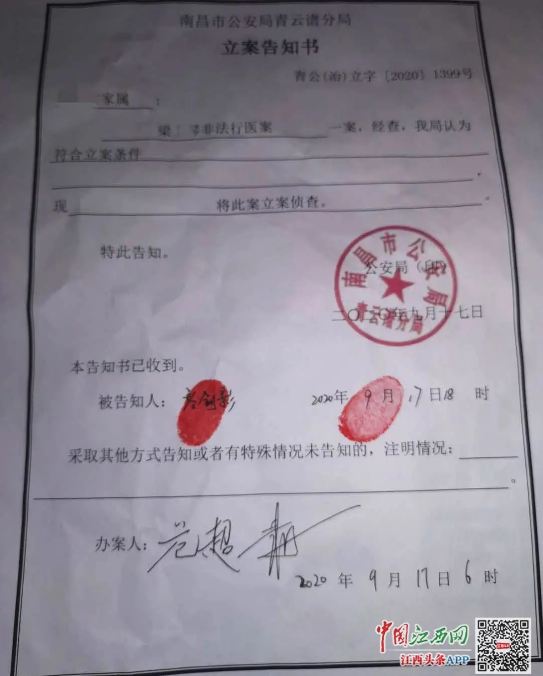 南昌市公安局青云谱分局
立案告知书
青公(治)立字〔2020〕1399号
家属:
梁 等非法行医案 一案,经查,我局认为
符合立案条件
。
现 将此案立案侦查。
特此告知。
公安局(印)
南昌市公安局
青云谱分局
二〇二〇年九月十七日
本告知书已收到。
被告知人: 2020年9月17日18时
采取其他方式告知或者有特殊情况未告知的,注明情况:
。
办案人:
2020年9月17日6时
中国江西网
江西头条APP